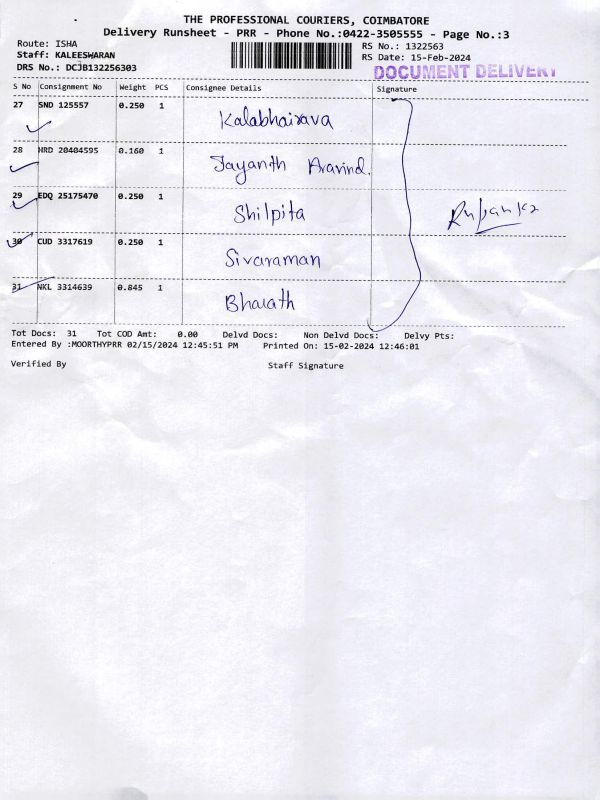 THE PROFESSIONAL COURIERS, COIMBATORE
Delivery Runsheet - PRR - Phone No.:0422-3505555 - Page No.:3
Route: ISHA
Staff: KALEESWARAN
DRS No.: DCJB132256303
RS No.: 1322563
RS Date: 15-Feb-2024
DOCUMENT DELIVERY
S No Consignment No Weight PCS Consignee Details Signature
27 SND 125557 0.250 1 Kalabhairava
28 MRD 20404595 0.160 1 Jayanth Aravind.
29 EDQ 25175470 0.250 1 Shilpita
30 CUD 3317619 0.250 1 Sivaraman
31 NKL 3314639 0.845 1 Bharath
Tot Docs: 31 Tot COD Amt: 0.00 Delvd Docs: Non Delvd Docs: Delvy Pts:
Entered By :MOORTHYPRR 02/15/2024 12:45:51 PM Printed On: 15-02-2024 12:46:01
Verified By Staff Signature